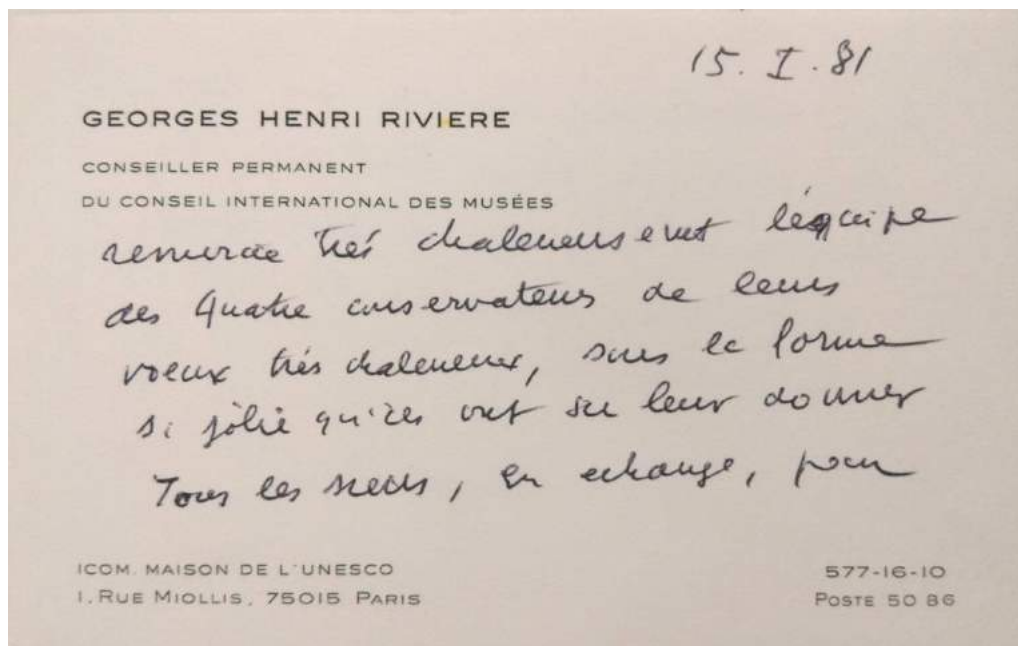 15. I. 81
GEORGES HENRI RIVIERE
CONSEILLER PERMANENT
DU CONSEIL INTERNATIONAL DES MUSÉES
remercie très chaleureusement l'équipe
des quatre conservateurs de leurs
voeux très chaleureux, sous la forme
si jolie qu'ils ont su leur donner
Tous les siens, en echange, pour
ICOM. MAISON DE L'UNESCO
1, RUE MIOLLIS, 75015 PARIS
577-16-10
POSTE 50 86